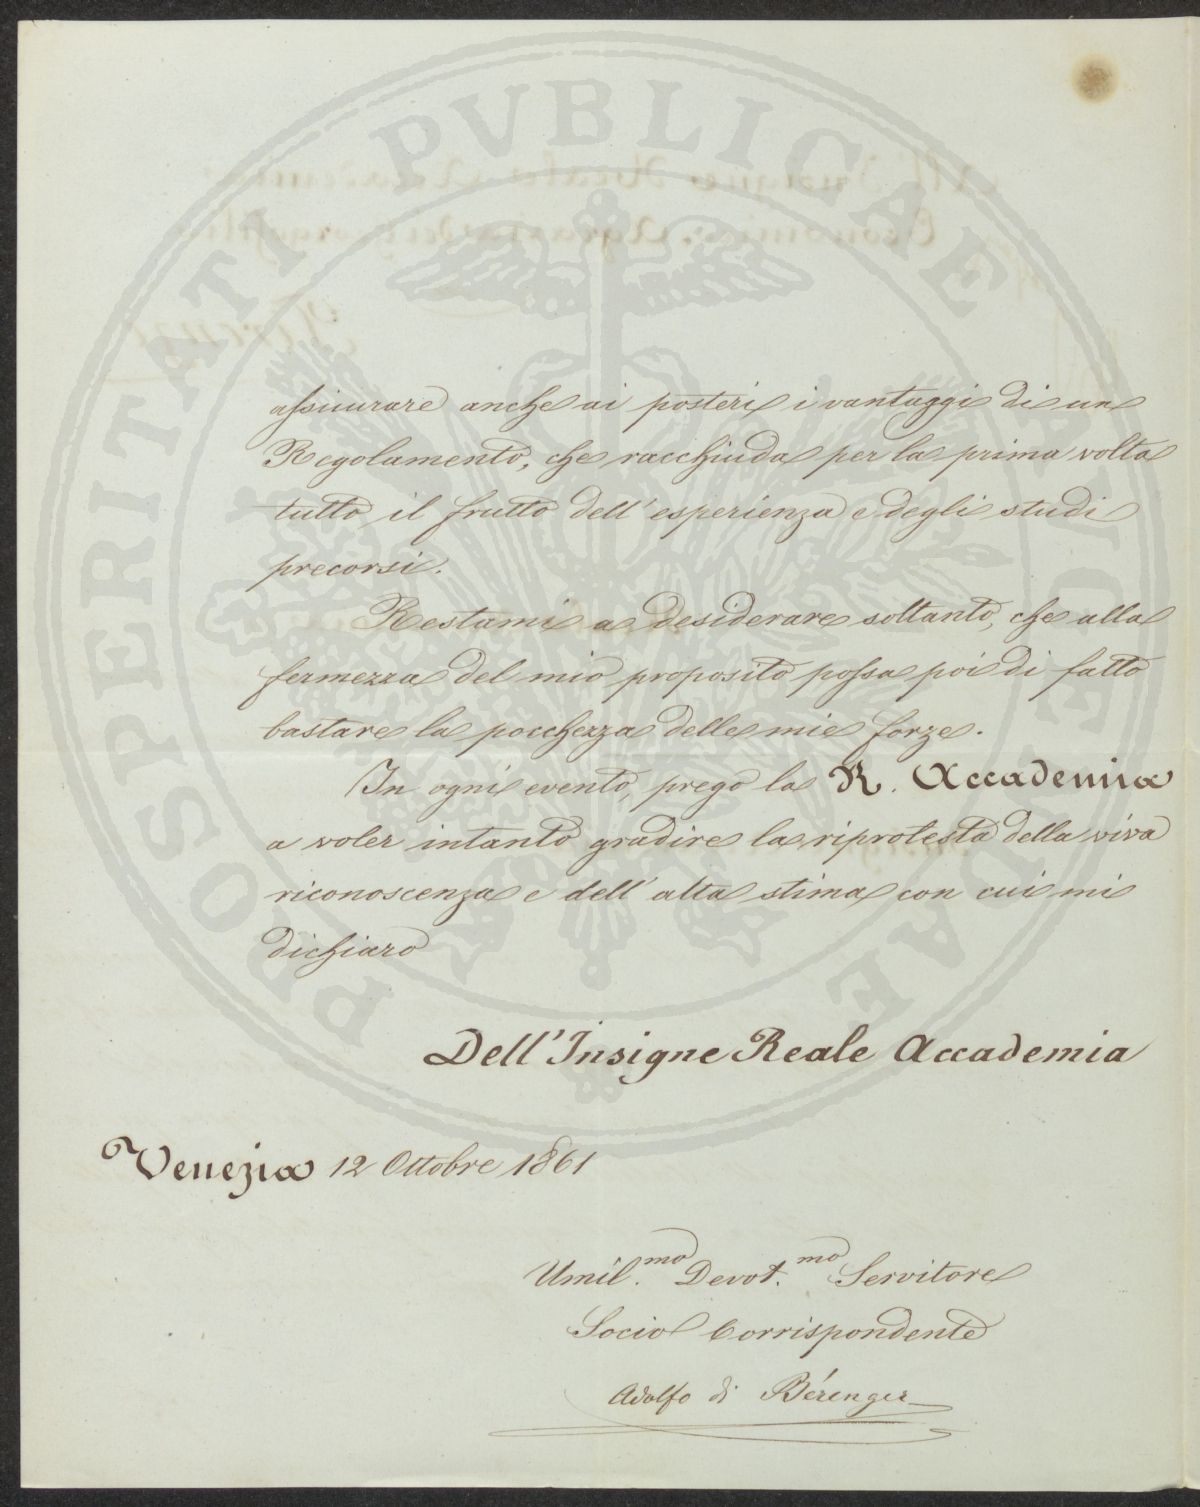 PROSPERITATI PVBLICAE AVGENDAE
assicurare anche ai posteri i vantaggi di un
Regolamento, che racchiuda per la prima volta
tutto il frutto dell' esperienza e degli studi
precorsi.
Restami a desiderare soltanto, che alla
fermezza del mio proposito possa poi di fatto
bastare la pocchezza delle mie forze.
In ogni evento, prego la R. Accademia
a voler intanto gradire la riprotesta della viva
riconoscenza e dell' alta stima con cui mi
dichiaro
Dell' Insigne Reale Accademia
Venezia 12 Ottobre 1861
Umil.mo Devot.mo Servitore
Socio Corrispondente
Adolfo di Bérenger